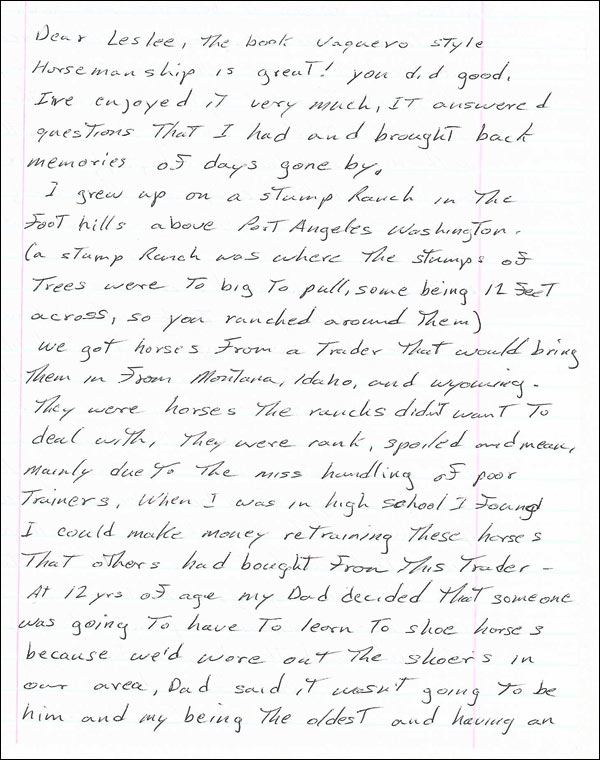 Dear Leslee, The book Vaquero style
Horsemanship is great! you did good.
I've enjoyed it very much, IT answered
questions That I had and brought back
memories of days gone by.
I grew up on a stump Ranch in The
Foot hills above Port Angeles Washington.
(a stump Ranch was where The stumps of
Trees were To big To pull, some being 12 feet
across, so you ranched around Them)
we got horses From a Trader That would bring
Them in From Montana, Idaho, and wyoming.
They were horses The ranchs didn't want To
deal with, They were rank, spoiled and mean,
mainly due To The miss handling of poor
Trainers. When I was in high school I Found
I could make money retraining These horses
That others had bought From This Trader -
At 12 yrs of age my Dad decided That someone
was going To have To learn To shoe horses
because we'd wore out The shoers in
our area, Dad said it wasn't going To be
him and my being The oldest and having an